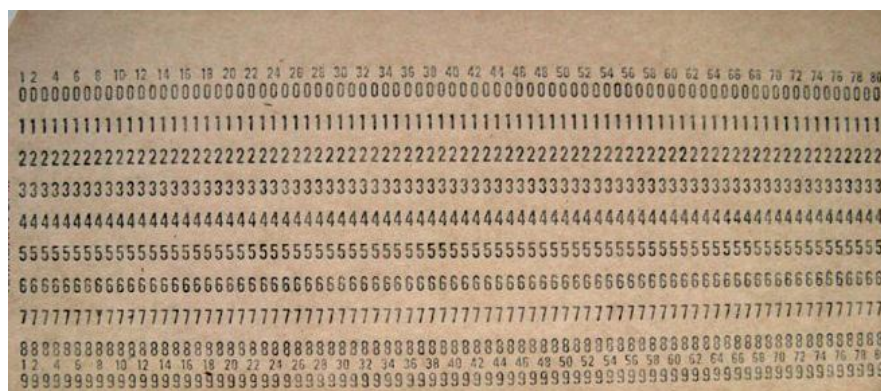 1 2 4 6 8 10 12 14 16 18 20 22 24 26 28 30 32 34 36 38 40 42 44 46 48 50 52 54 56 58 60 62 64 66 68 70 72 74 76 78 80
00000000000000000000000000000000000000000000000000000000000000000000000000000000
11111111111111111111111111111111111111111111111111111111111111111111111111111111
22222222222222222222222222222222222222222222222222222222222222222222222222222222
33333333333333333333333333333333333333333333333333333333333333333333333333333333
44444444444444444444444444444444444444444444444444444444444444444444444444444444
55555555555555555555555555555555555555555555555555555555555555555555555555555555
66666666666666666666666666666666666666666666666666666666666666666666666666666666
77777777777777777777777777777777777777777777777777777777777777777777777777777777
88888888888888888888888888888888888888888888888888888888888888888888888888888888
1 2 4 6 8 10 12 14 16 18 20 22 24 26 28 30 32 34 36 38 40 42 44 46 48 50 52 54 56 58 60 62 64 66 68 70 72 74 76 78 8
99999999999999999999999999999999999999999999999999999999999999999999999999999999